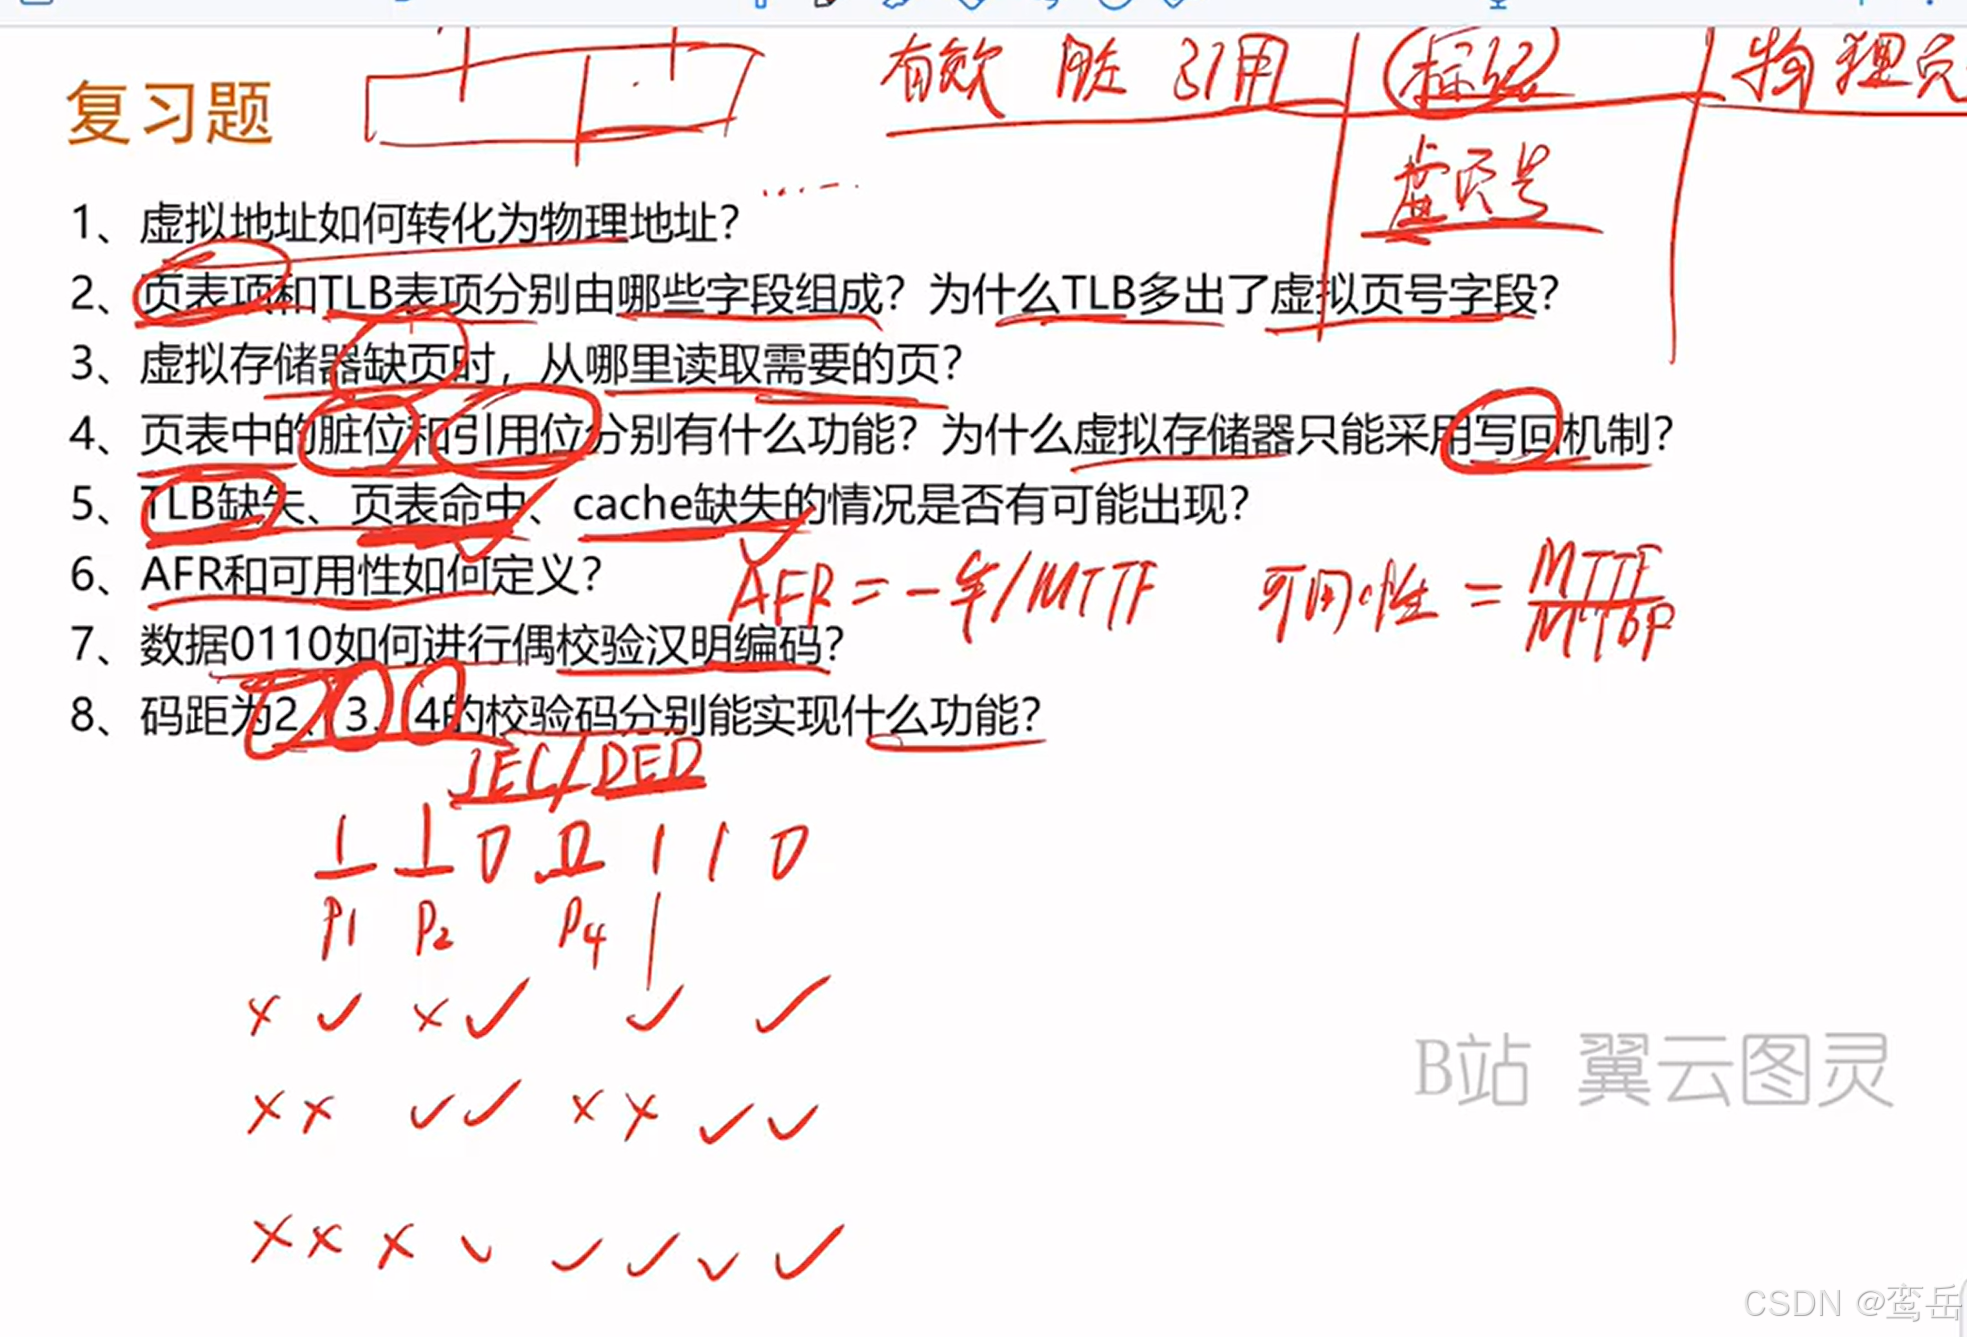 有效 脏 引用 标记 物理页
复习题
虚页号
1、虚拟地址如何转化为物理地址?
2、页表项和TLB表项分别由哪些字段组成？为什么TLB多出了虚拟页号字段?
3、虚拟存储器缺页时，从哪里读取需要的页?
4、页表中的脏位和引用位分别有什么功能？为什么虚拟存储器只能采用写回机制?
5、TLB缺失、页表命中、cache缺失的情况是否有可能出现?
6、AFR和可用性如何定义?
AFR = 一年/MTTF 可用性 = MTTF/MTBF
7、数据0110如何进行偶校验汉明编码?
8、码距为2、3、4的校验码分别能实现什么功能?
SEC/DED
1 1 0 0 1 1 0
P1 P2 P4
× ✓ × ✓ ✓ ✓
× × ✓ ✓ × × ✓ ✓
× × × ✓ ✓ ✓ ✓ ✓
B站 翼云图灵
CSDN @鸾岳